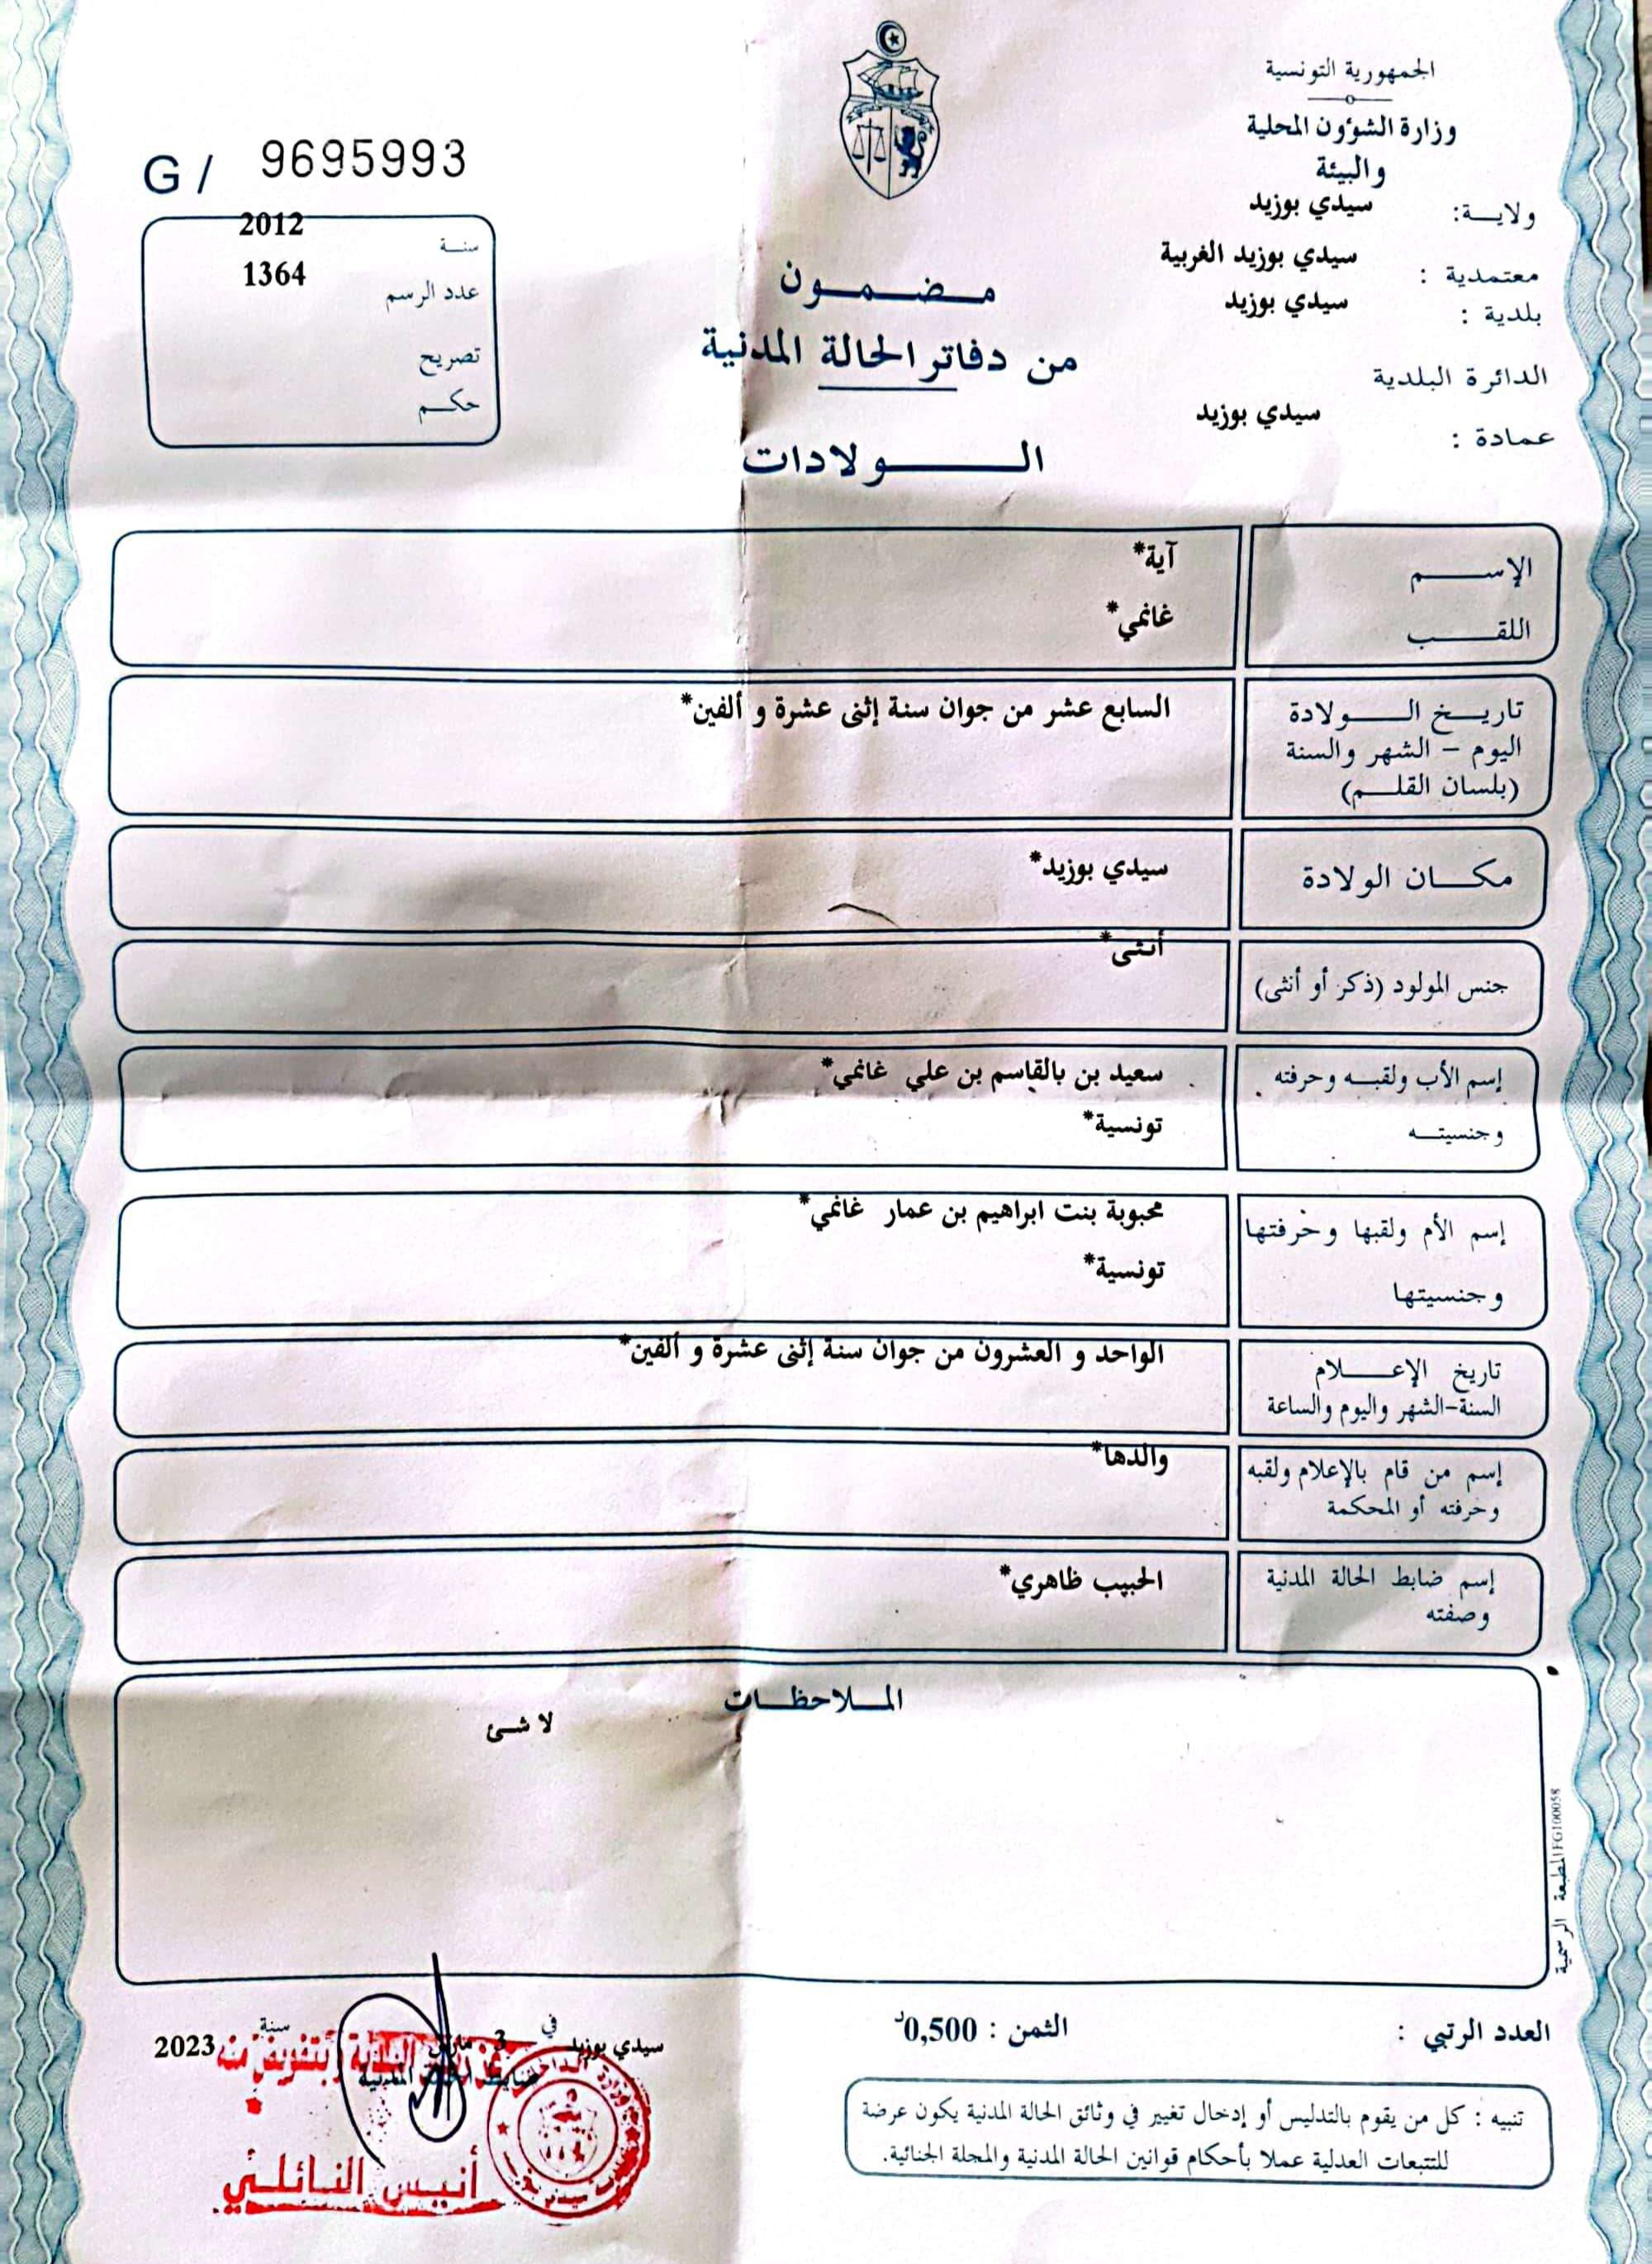 الجمهورية التونسية
وزارة الشؤون المحلية
والبيئة
ولايـــة: سيدي بوزيد
معتمدية : سيدي بوزيد الغربية
بلدية : سيدي بوزيد
الدائرة البلدية
عمادة : سيدي بوزيد
G / 9695993
سنـة 2012
عدد الرسم 1364
تصريح
حكـم
مـضـمـون
من دفاتر الحالة المدنية
الـــولادات
الإســـم آية*
اللقـــب غانمي*
تاريـخ الــولادة السابع عشر من جوان سنة إثنى عشرة و ألفين*
اليوم - الشهر والسنة
(بلسان القلـم)
مكـان الولادة سيدي بوزيد*
جنس المولود (ذكر أو أنثى) أنثى*
إسم الأب ولقبـه وحرفته سعيد بن بالقاسم بن علي غانمي*
وجنسيتـه تونسية*
إسم الأم ولقبها وحرفتها محبوبة بنت ابراهيم بن عمار غانمي*
وجنسيتها تونسية*
تاريخ الإعـــلام الواحد و العشرون من جوان سنة إثنى عشرة و ألفين*
السنة-الشهر واليوم والساعة
إسم من قام بالإعلام ولقبه والدها*
وحرفته أو المحكمة
إسم ضابط الحالة المدنية الحبيب ظاهري*
وصفته
المـلاحظـات
لا شئ
المطبعة الرسمية IFG100058
العدد الرتبي :
الثمن : 0,500د
سيدي بوزيد في 3 مارس سنة 2023
ضابط الحالة المدنية
بتفويض منه
أنيس النائلي
تنبيه : كل من يقوم بالتدليس أو إدخال تغيير في وثائق الحالة المدنية يكون عرضة
للتتبعات العدلية عملا بأحكام قوانين الحالة المدنية والمجلة الجنائية.